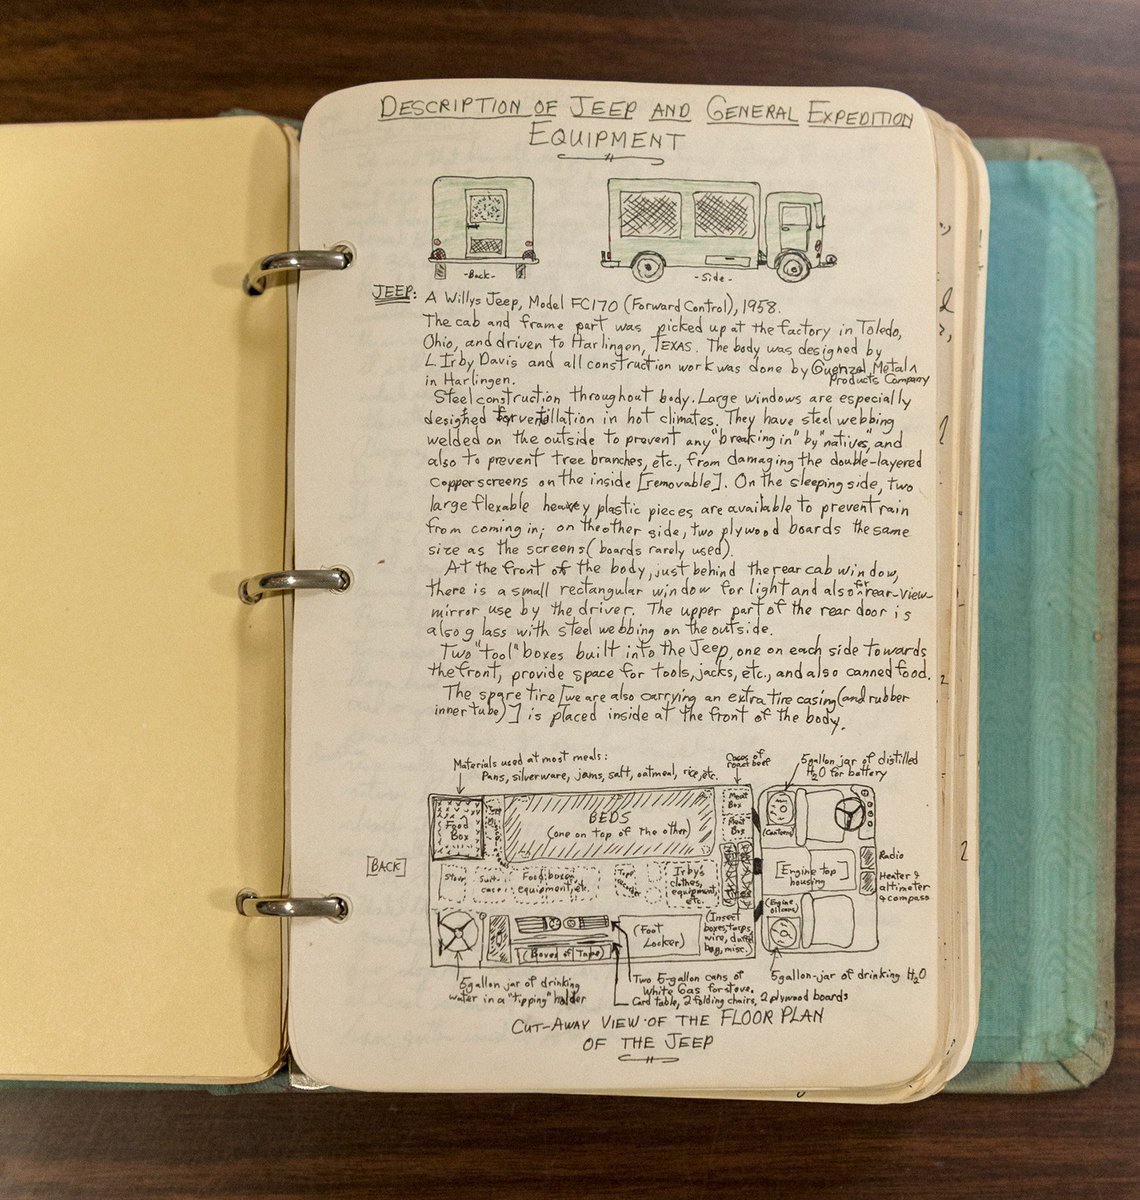 DESCRIPTION OF JEEP AND GENERAL EXPEDITION
EQUIPMENT
-Back-
-Side-
JEEP: A Willys Jeep, Model FC170 (Forward Control), 1958.
The cab and frame part was picked up at the factory in Toledo,
Ohio, and driven to Harlingen, TEXAS. The body was designed by
L. Irby Davis and all construction work was done by Guenzel Metal
Products Company
in Harlingen.
Steel construction throughout body. Large windows are especially
designed for ventillation in hot climates. They have steel webbing
welded on the outside to prevent any "breaking in" by "natives", and
also to prevent tree branches, etc., from damaging the double-layered
copper screens on the inside [removable]. On the sleeping side, two
large flexable heavy plastic pieces are available to prevent rain
from coming in; on the other side, two plywood boards the same
size as the screens (boards rarely used).
At the front of the body, just behind the rear cab window,
there is a small rectangular window for light and also for rear-view-
mirror use by the driver. The upper part of the rear door is
also glass with steel webbing on the outside.
Two "tool" boxes built into the Jeep, one on each side towards
the front, provide space for tools, jacks, etc., and also canned food.
The spare tire [we are also carrying an extra tire casing (and rubber
inner tube)] is placed inside at the front of the body.
Materials used at most meals:
Pans, silverware, jams, salt, oatmeal, rice, etc.
Cases of
roast beef
5 gallon jar of distilled
H2O for battery
Food
Box
BEDS
(one on top of the other)
Meat
Box
Meat
Box
(Canteens)
[BACK]
Stove
Suit-
cases
Food boxes,
equipment, etc.
Tape
recorder
Irby's
clothes,
equipment,
etc.
Engine top
housing
Radio
Heater &
altimeter
& compass
(Engine
oil cans)
(Boxes of Tape)
(Foot
Locker)
(Insect
boxes, tarps,
wire, duffel
bag, misc.)
5 gallon jar of drinking
water in a "tipping" holder
Two 5-gallon cans of
White Gas for stove.
Card table, 2 folding chairs, 2 plywood boards
5 gallon-jar of drinking H2O
CUT-AWAY VIEW OF THE FLOOR PLAN
OF THE JEEP